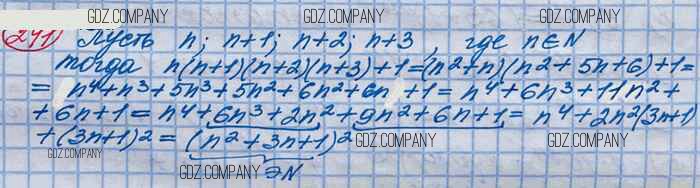 GDZ.COMPANY GDZ.COMPANY GDZ.COMPANY
241) Пусть n; n+1; n+2; n+3, где n∈N
тогда n(n+1)(n+2)(n+3)+1=(n²+n)(n²+5n+6)+1=
= n⁴+n³+5n³+5n²+6n²+6n+1= n⁴+6n³+11n²+
+6n+1= n⁴+6n³+2n²+9n²+6n+1= n⁴+2n²(3n+1)
+(3n+1)²= (n²+3n+1)²
GDZ.COMPANY GDZ.COMPANY GDZ.COMPANY
GDZ.COMPANY ∋N